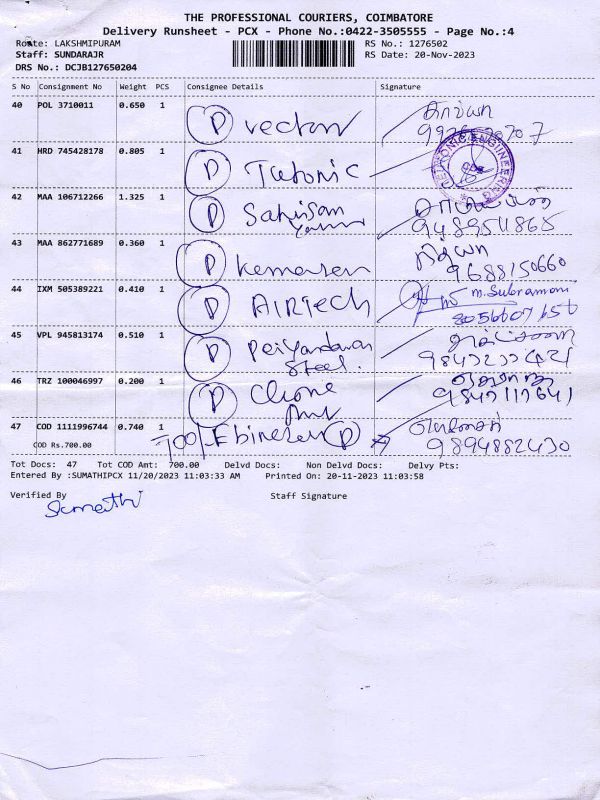 THE PROFESSIONAL COURIERS, COIMBATORE
Delivery Runsheet - PCX - Phone No.:0422-3505555 - Page No.:4
Route: LAKSHMIPURAM RS No.: 1276502
Staff: SUNDARAJR RS Date: 20-Nov-2023
DRS No.: DCJB127650204
S No Consignment No Weight PCS Consignee Details Signature
40 POL 3710011 0.650 1 P vector
41 HRD 745428178 0.805 1 P
42 MAA 106712266 1.325 1 P
9489511865
43 MAA 862771689 0.360 1 P
9688150660
44 IXM 505389221 0.410 1 P AIRTech m. Subramani
8056607656
45 VPL 945813174 0.510 1 P
Steel.
46 TRZ 100046997 0.200 1 P
9847117641
47 COD 1111996744 0.740 1 700/- Ebinezer P
COD Rs.700.00 9894882430
Tot Docs: 47 Tot COD Amt: 700.00 Delvd Docs: Non Delvd Docs: Delvy Pts:
Entered By :SUMATHIPCX 11/20/2023 11:03:33 AM Printed On: 20-11-2023 11:03:58
Verified By Staff Signature
Sumathi